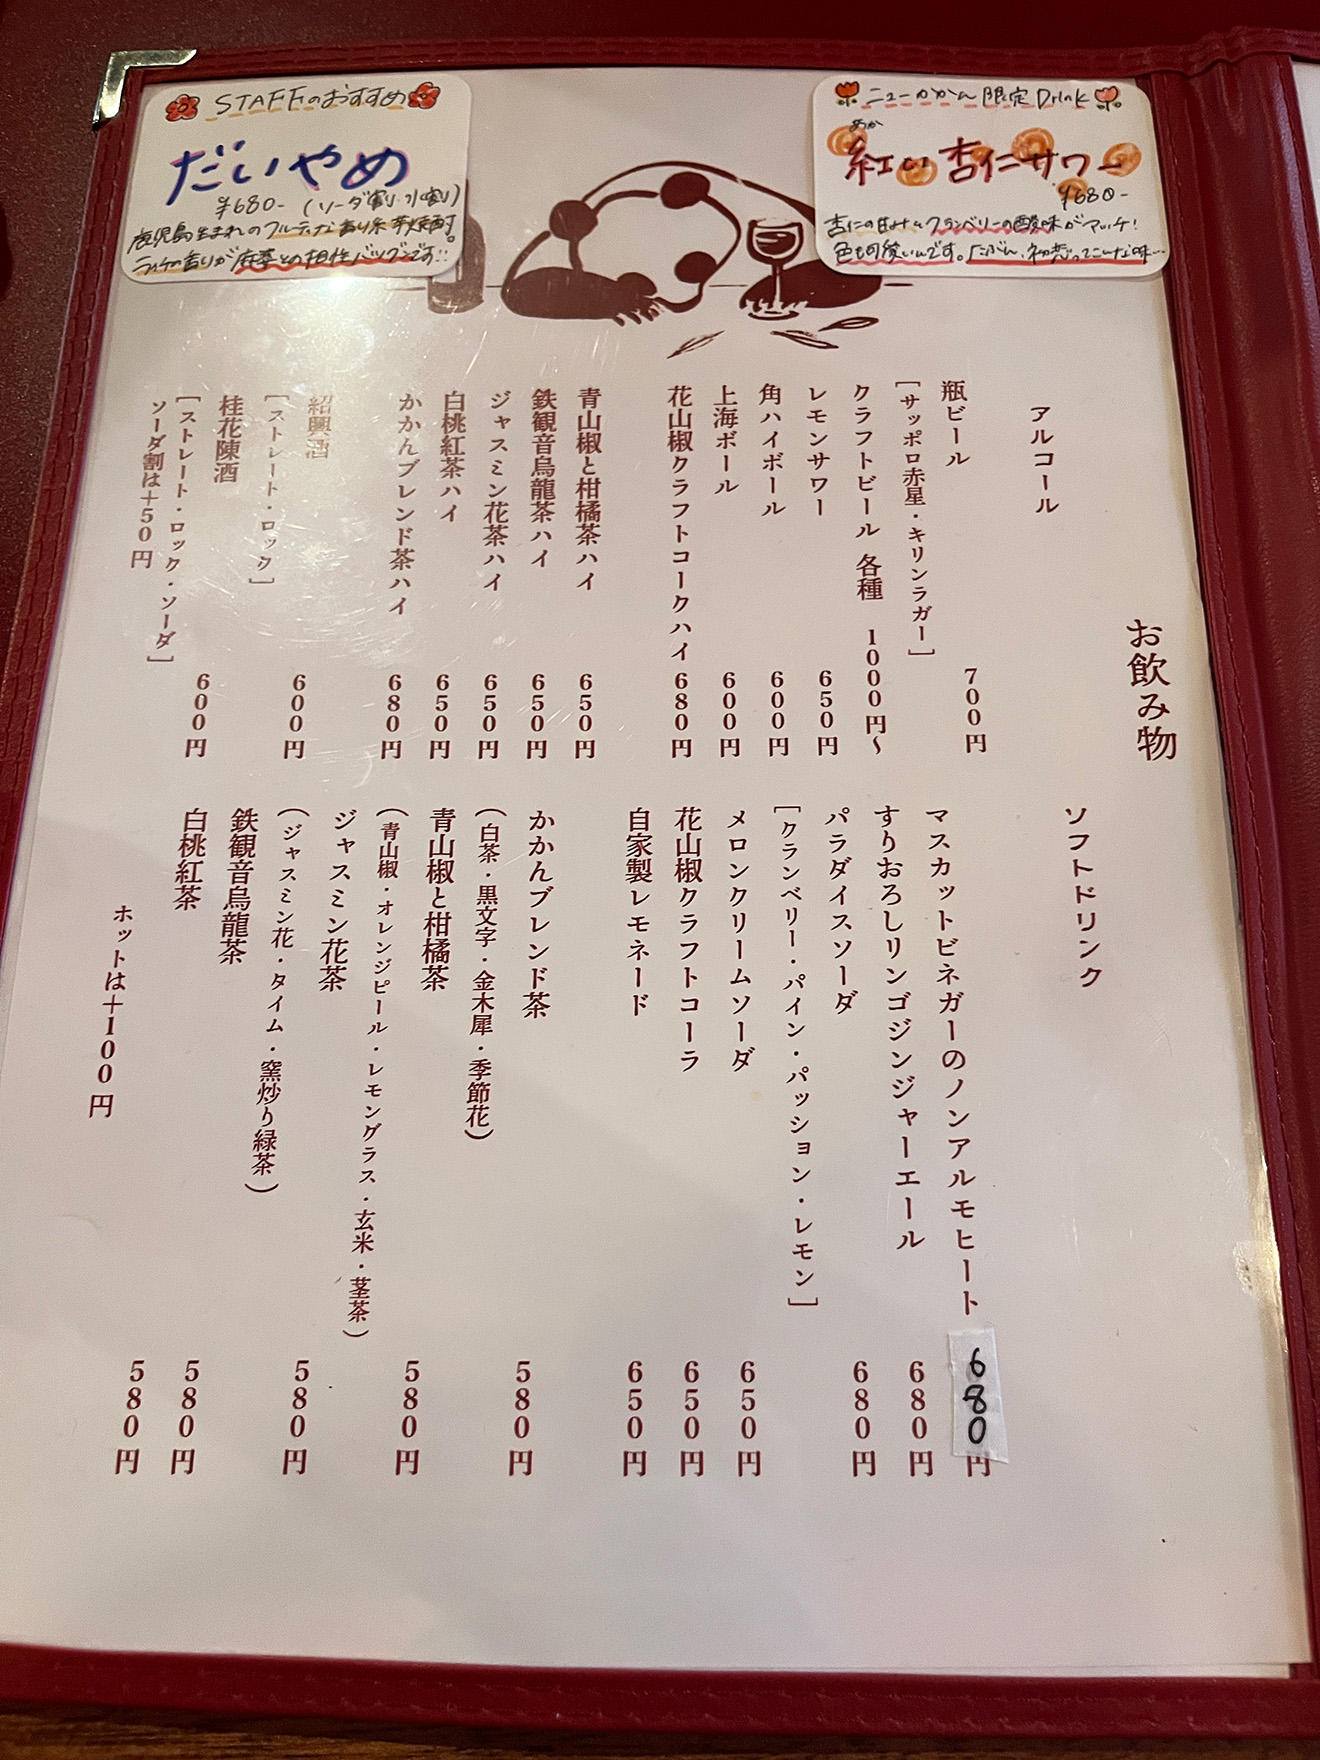 STAFFのおすすめ
だいやめ
¥680-(ソーダ割り・水割り)
鹿児島生まれのフルーティな香り系芋焼酎。
ライチの香りが麻婆との相性バツグンです!!
ニューかかん限定Drink
あか
紅い杏仁サワー
¥680-
杏仁の甘みとクランベリーの酸味がマッチ!
色も可愛いんです。たぶん、初恋ってこんな味…
お飲み物
アルコール
瓶ビール 700円
[サッポロ赤星・キリンラガー]
クラフトビール 各種 1000円〜
レモンサワー 650円
角ハイボール 600円
上海ボール 600円
花山椒クラフトコークハイ 680円
青山椒と柑橘茶ハイ 650円
鉄観音烏龍茶ハイ 650円
ジャスミン花茶ハイ 650円
白桃紅茶ハイ 650円
かかんブレンド茶ハイ 680円
紹興酒 600円
[ストレート・ロック]
桂花陳酒 600円
[ストレート・ロック・ソーダ]
ソーダ割は+50円
ソフトドリンク
マスカットビネガーのノンアルモヒート 680円
すりおろしリンゴジンジャーエール 680円
パラダイスソーダ 680円
[クランベリー・パイン・パッション・レモン]
メロンクリームソーダ 650円
花山椒クラフトコーラ 650円
自家製レモネード 650円
かかんブレンド茶 580円
(白茶・黒文字・金木犀・季節花)
青山椒と柑橘茶 580円
(青山椒・オレンジピール・レモングラス・玄米・茎茶)
ジャスミン花茶 580円
(ジャスミン花・タイム・窯炒り緑茶)
鉄観音烏龍茶 580円
白桃紅茶 580円
ホットは+100円